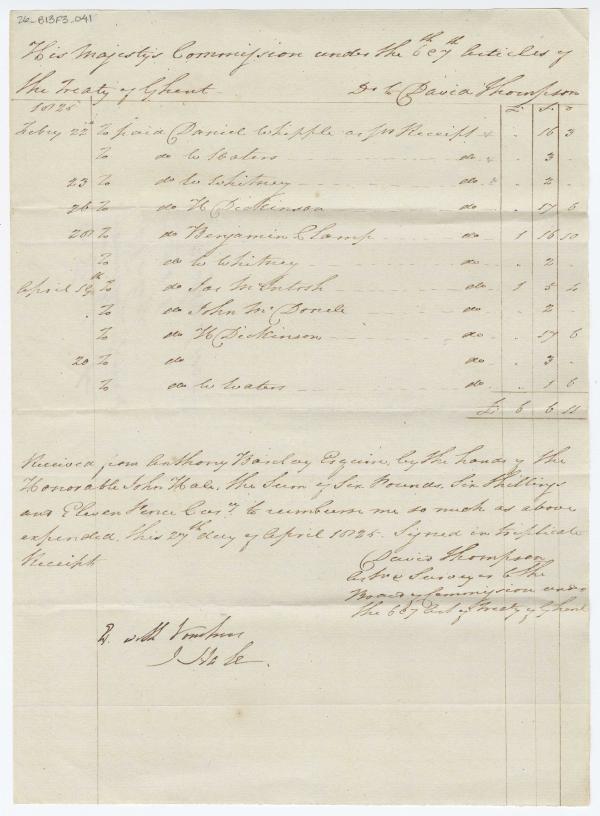 26-B13F3-041
His Majesty's Commission under the 6th & 7th Articles of
the Treaty of Ghent Dr to David Thompson
1825 £ S. D
Febry 22nd To paid Daniel Whipple as pr Receipt . 16 3
To do W Waters do . 3 .
23 To do W Whitney do . 2 .
26 To do H Dickinson do . 17 6
28 To do Benjamin Clamp do 1 16 10
To do W Whitney do . 2 .
April 19th To do Jas McIntosh do 1 5 4
To do John McDonele do . 2 .
To do H Dickinson do . 17 6
20 To do do . 3 .
To do W Waters do . 1 6
£ 6 6 11
Received from Anthony Barclay Esquire, by the hands of the
Honorable John Hale, the Sum of Six Pounds, Six Shillings
and Eleven Pence Cury to reimburse me so much as above
expended, this 27th day of April 1825. Signed in triplicate
Receipt
David Thompson
Astr & Surveyor to the
Board of Commission under
the 6 & 7 Art of Treaty of Ghent
2. with Vouchers
J Hale.